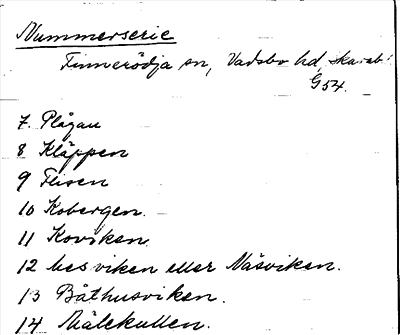 Nummerserie
Finnerödja sn, Vadsbo hd, Skarab.
G54.
7 Plågan
8 Kläppen
9 Flisen
10 Kobergen.
11 Koviken
12 hesviken eller Näsviken.
13 Båthusviken.
14 Målekullen.